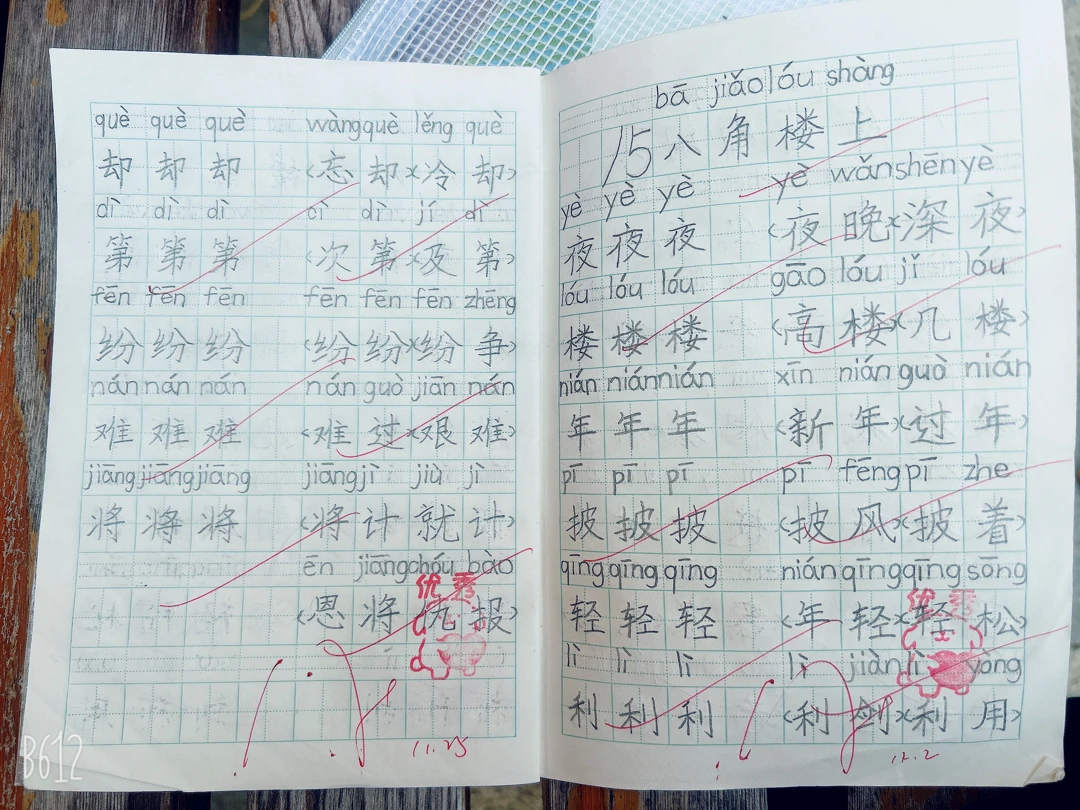 què què què wàng què lěng què
却 却 却 〈忘 却〉〈冷 却〉
dì dì dì cì dì jí dì
第 第 第 〈次 第〉〈及 第〉
fēn fēn fēn fēn fēn fēn zhēng
纷 纷 纷 〈纷 纷〉〈纷 争〉
nán nán nán nán guò jiān nán
难 难 难 〈难 过〉〈艰 难〉
jiāng jiāng jiāng jiāng jì jiù jì
将 将 将 〈将 计 就 计〉
ēn jiāng chóu bào
〈恩 将 仇 报〉
优秀
11.25
B612
bā jiǎo lóu shàng
15 八 角 楼 上
yè yè yè yè wǎn shēn yè
夜 夜 夜 〈夜 晚〉〈深 夜〉
lóu lóu lóu gāo lóu jǐ lóu
楼 楼 楼 〈高 楼〉〈几 楼〉
nián nián nián xīn nián guò nián
年 年 年 〈新 年〉〈过 年〉
pī pī pī pī fēng pī zhe
披 披 披 〈披 风〉〈披 着〉
qīng qīng qīng nián qīng qīng sōng
轻 轻 轻 〈年 轻〉〈轻 松〉
lì lì lì lì jiàn lì yòng
利 利 利 〈利 剑〉〈利 用〉
优秀
12.2